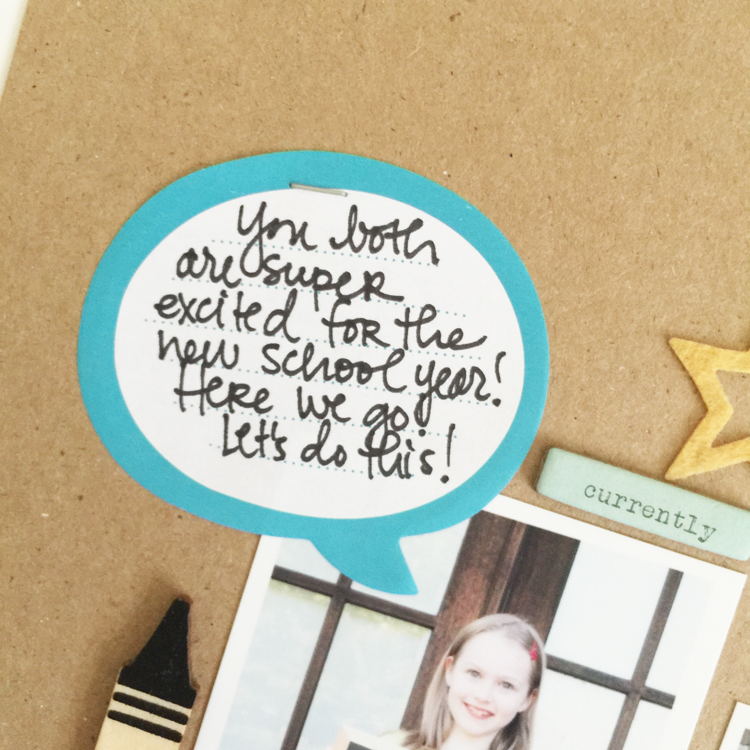 You both
are super
excited for the
new school year!
Here we go.
Let's do this!
currently